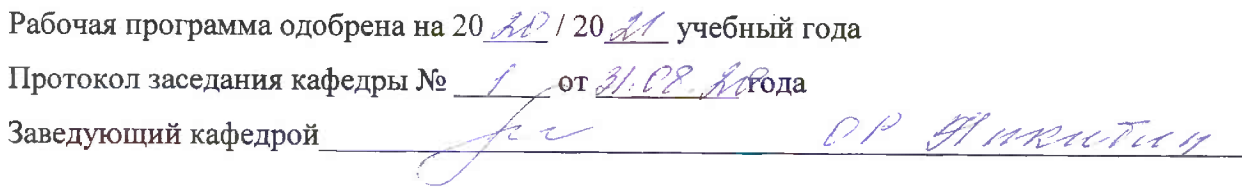 Рабочая программа одобрена на 2020 / 2021 учебный года
Протокол заседания кафедры № 1 от 31.08.20 года
Заведующий кафедрой ОР Никитин